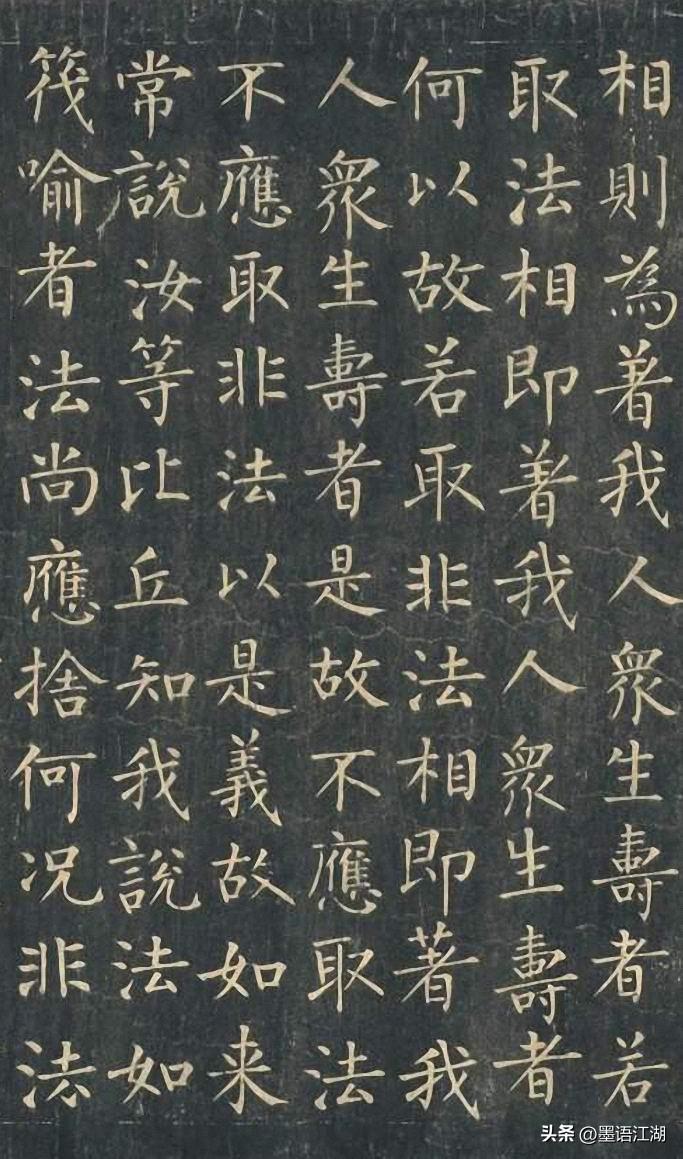 相則為著我人衆生壽者若
取法相即著我人衆生壽者
何以故若取非法相即著我
人衆生壽者是故不應取法
不應取非法以是義故如来
常說汝等比丘知我說法如
筏喻者法尚應捨何况非法
头条 @墨语江湖